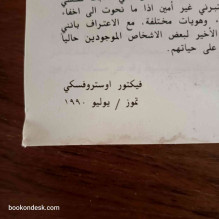 تبرني غير أمين اذا ما نحوت الى اخفاء
وهويات مختلفة. مع الاعتراف بأنني
الأخير لبعض الاشخاص الموجودين حالياً
على حياتهم.
فيكتور اوستروفسكي
تموز / يوليو ١٩٩٠
bookondesk.com